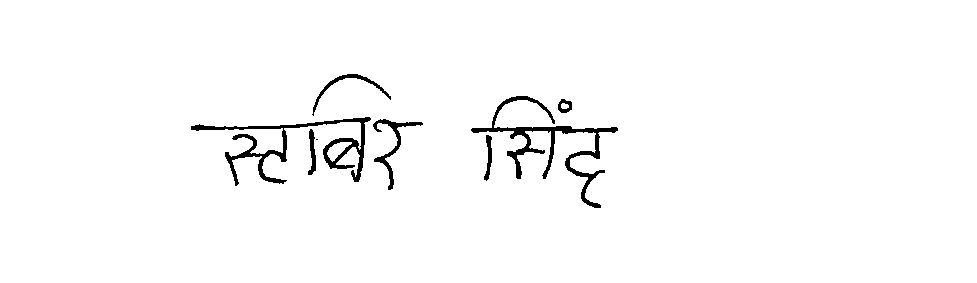 स्टाबिर सिंह